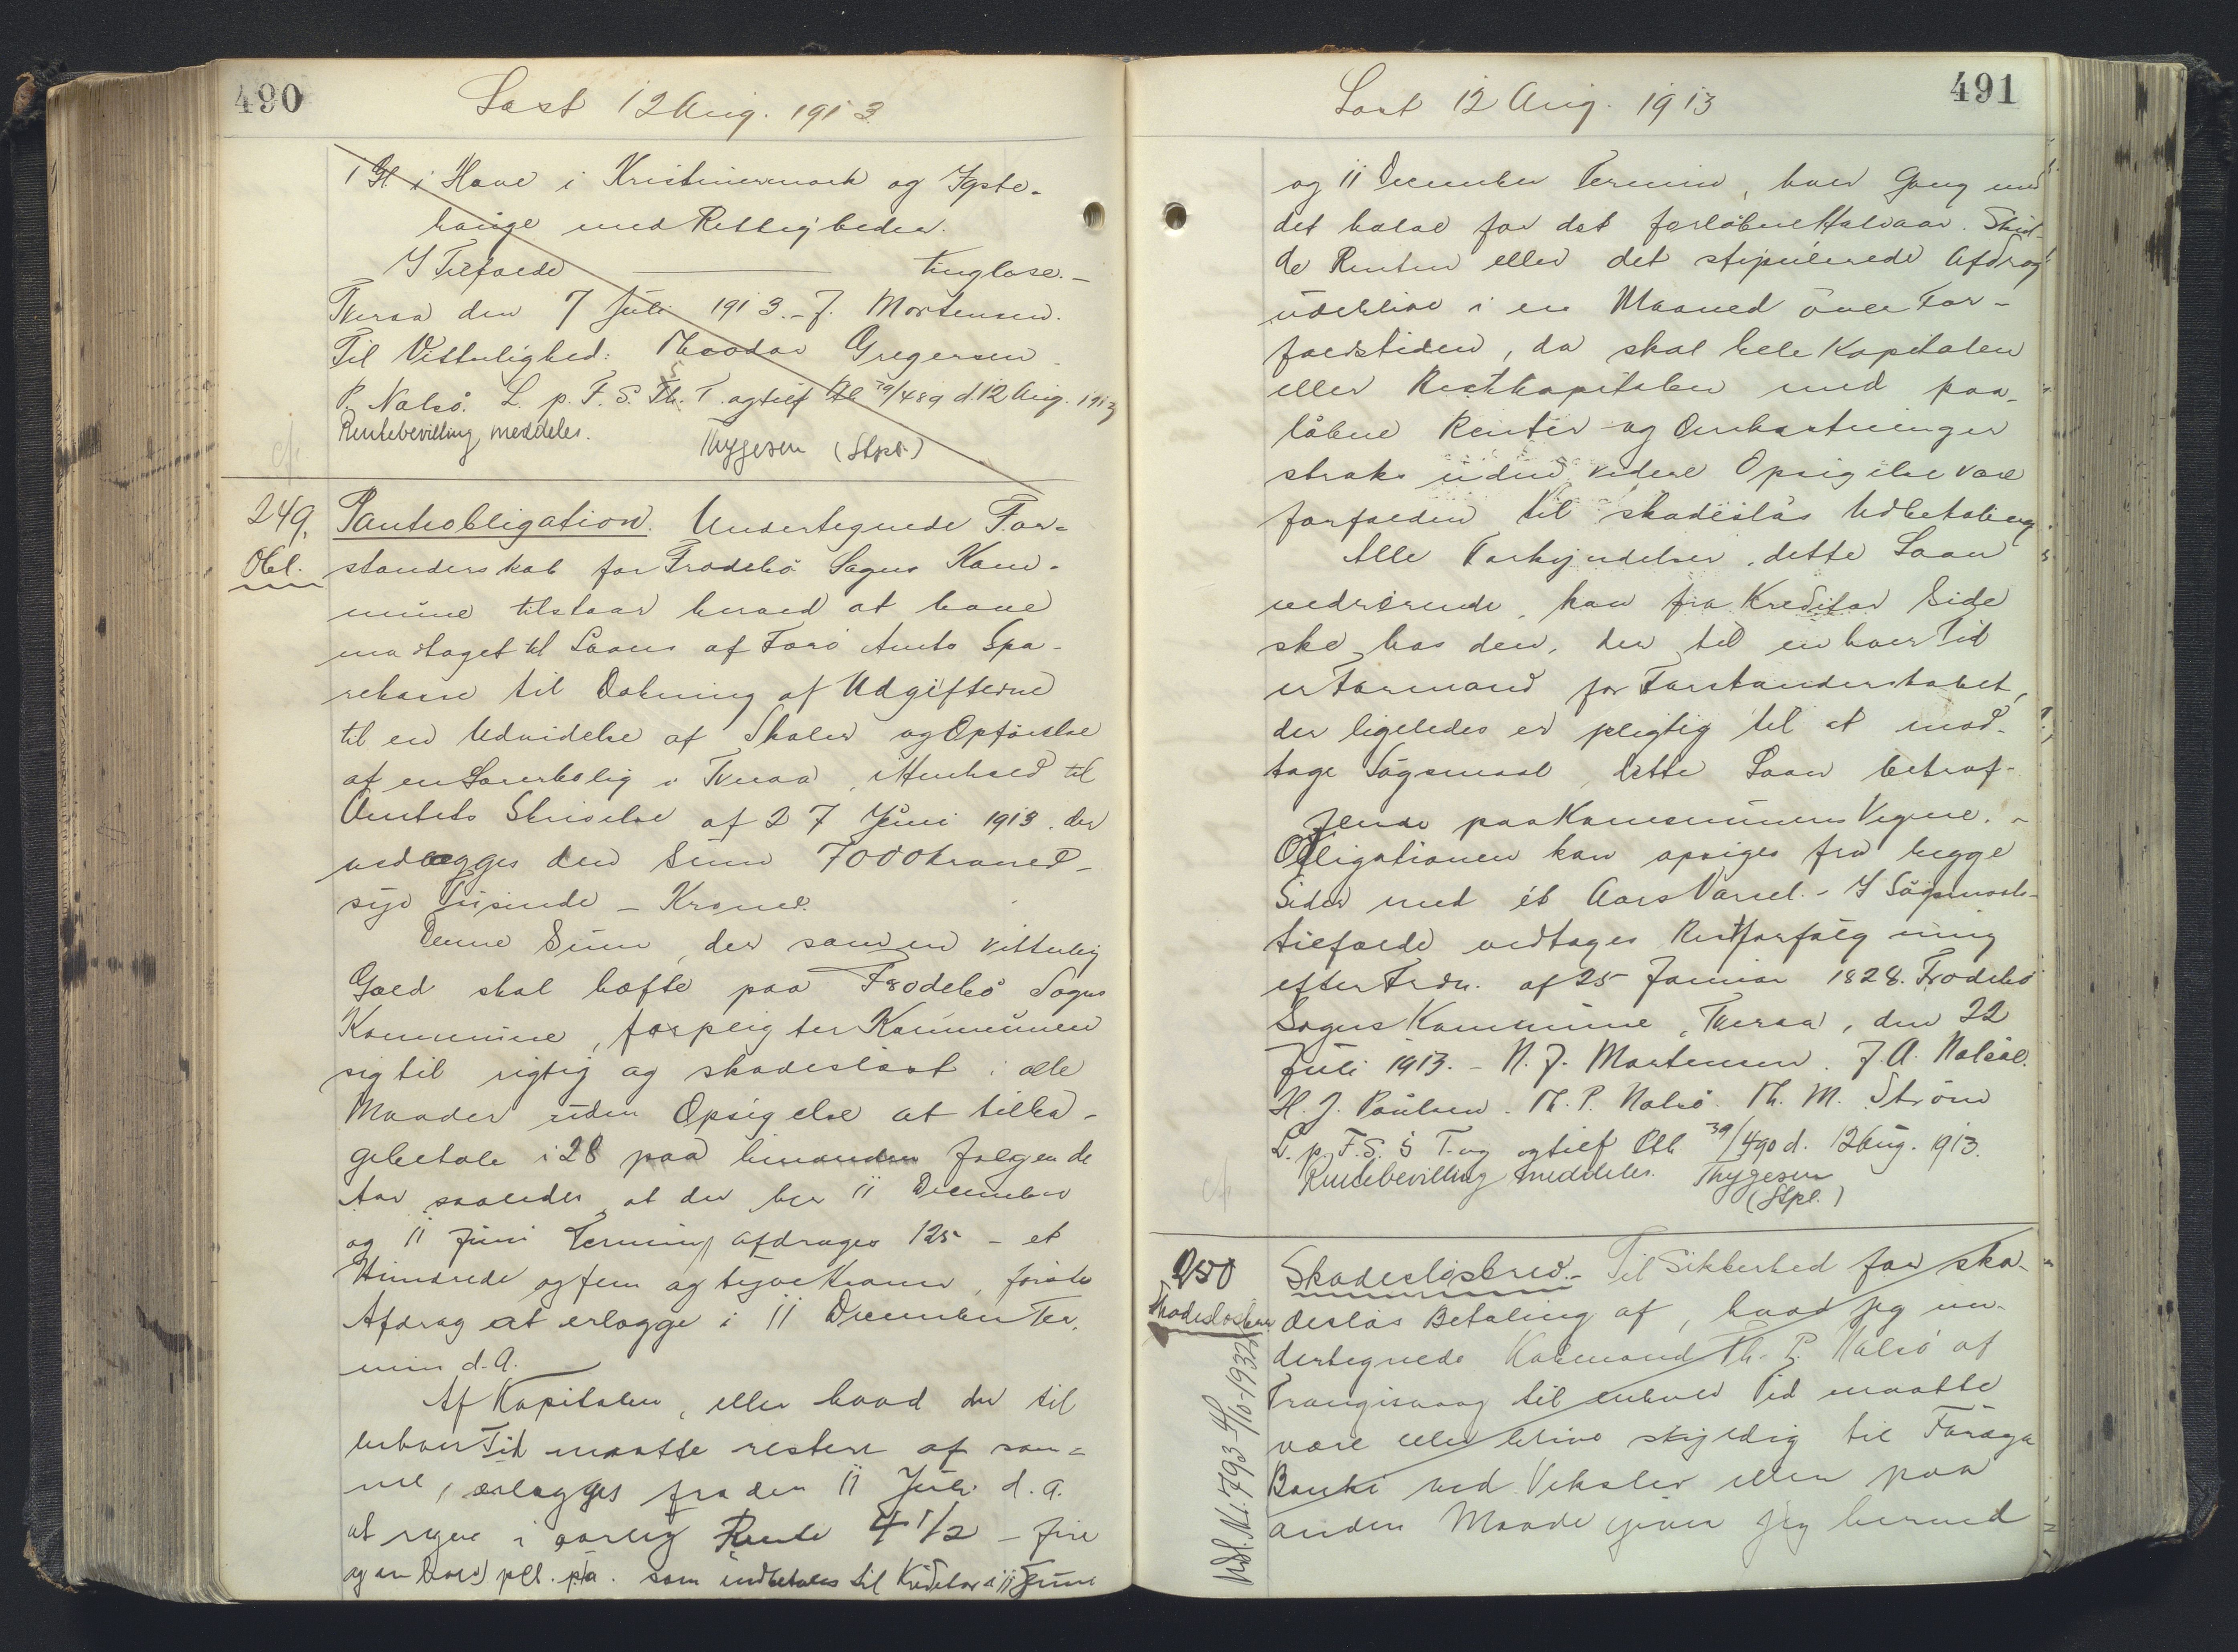 490
Læst 12 Aug. 1913
1 Gl i Have i Kristinesmark og Igste-
hauge med Rettigheder.
I Tilfælde ——— tinglæse.-
Tveraa den 7 Juli 1913.- J. Mortensen.
Til Vitterlighed: Theodor Gregersen
P. Nolsö. L. p. F. S. Th. T. og tilf Otb 39/489 d. 12 Aug. 1913
Rentebevilling meddeles.
Thygesen (Stpl.)
cf.
249. Panteobligation. Undertegnede For-
Obl. standerskab for Frodebö Sogns Kom-
mune tilstaar herved at have
modtaget til Laans af Færö Amts Spa-
rekasse til Dækning af Udgifterne
til en Udvidelse af Skolen og Opförelse
af en Lærerbolig i Tveraa, i Henhold til
Amtets Skrivelse af 27 Juni 1913. der
vedlægges den Sum 7000 kroner -
syv Tusinde - Kroner.
Denne Sum, der som en vitterlig
Gæld skal hæfte paa Frodebö Sogns
Kommune, forpligter Kommunen
sig til rigtig og skadeslöst i alle
Maader uden Opsigelse at tilba-
gebetale i 28 paa hinanden fölgende
Aar saaledes at der hver 11 December
og 11 Juni Termin afdrages 125 - et
Hundrede og fem og tyve Kroner, förste
Afdrag at erlægge i 11 December Ter-
min d. A.
Af Kapitalen, eller hvad der til
enhver Tid maatte restere af sam-
me, erlægges fra den 11 Juli d. A.
at regne i aarlig Rente 4 1/2 - fire
og en halv) pCt. p.a. som indbetales til Kreditor i 11 Juni
491
Læst 12 Aug. 1913
og 11 December Termin, hver Gang med
det halve for det forlöbne Halvaar. Skul-
de Renten eller det stipulerede Afdrag
udeblive i en Maaned over For-
faldstiden, da skal hele Kapitalen
eller Restkapitalen med paa-
löbne Renter og Omkostninger
straks uden videre Opsigelse være
forfalden til skadeslös Udbetaling.
Alle Forkyndelser, dette Laan
vedrörende, kan fra Kreditor Side
ske hos den, der til enhver Tid
er Formand for Forstanderskabet,
der ligeledes er pligtig til at mod-
tage Sögsmaal, dette Laan betræf-
fende paa Kommunens Vegne. -
Obligationen kan opsiges fra begge
Sider med ét Aars Varsel. - I Sögsmaals-
tilfælde vedtages Retsforfölgning
efter Frdn. af 25 Januar 1828. Frodebö
Sogns Kommune, Tveraa, den 22
Juli 1913. - N. J. Mortensen. J. A. Nolsöe.
H. J. Poulsen. Th. P. Nolsö. Th. M. Ström
L. p. F. S. S T. og og tilf Otb 39/490 d. 12 Aug. 1913.
Rentebevilling meddeles. Thygesen
(Stpl.)
cf.
250 Skadeslösbrev.- Til Sikkerhed for ska-
Skadeslösbrev deslös Betaling af, hvad jeg un-
dertegnede Köbmand Th. P. Nolsö af
Trangisvaag til enhver Tid maatte
være eller blive skyldig til Föroya
Banki ved Veksler eller paa
anden Maade giver jeg herved
Udl. Nr. 793 4/10-1932